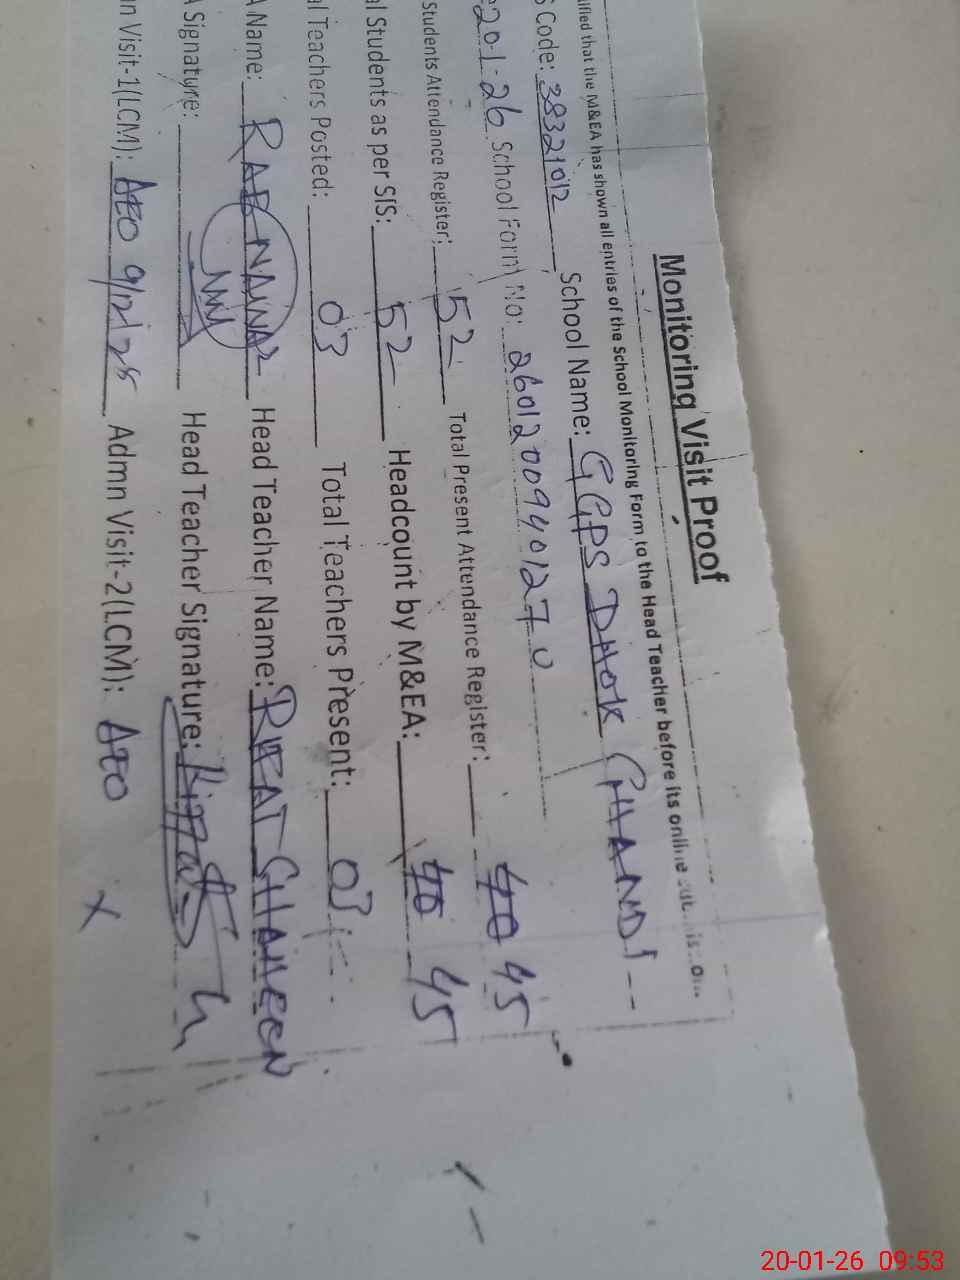 Monitoring Visit Proof
ified that the M&EA has shown all entries of the School Monitoring Form to the Head Teacher before its online
Code: 38321012 School Name: GGPS DHOK CHANDI
20-1-26 School Form No: 26012009401270
Students Attendance Register: 52 Total Present Attendance Register: 40 45
al Students as per SIS: 52 Headcount by M&EA: 40 45
al Teachers Posted: 03 Total Teachers Present: 03
A Name: RAB NAWAZ Head Teacher Name: RIFAT SHAHEEN
A Signature: Head Teacher Signature:
n Visit-1(LCM): AEO 9/12/25 Admn Visit-2(LCM): AEO X
20-01-26 09:53